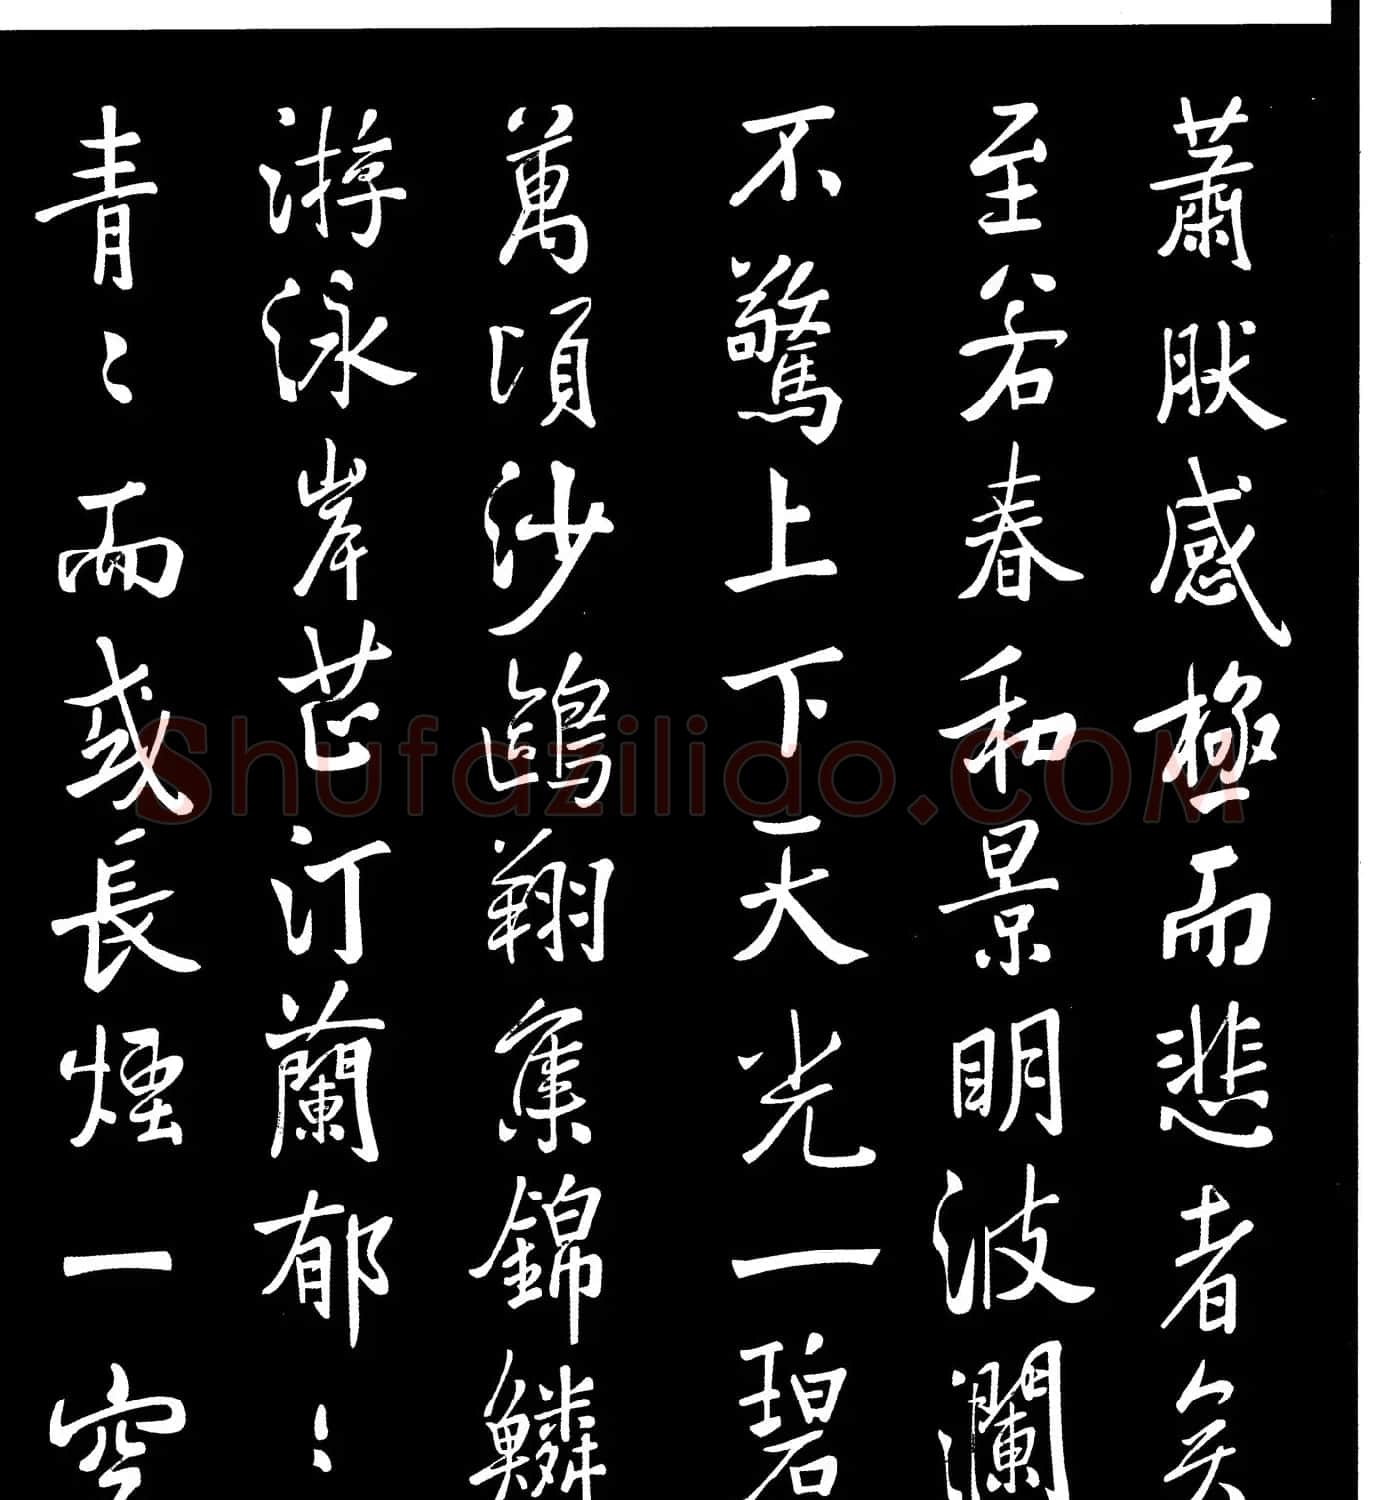 蕭然感極而悲者矣
至若春和景明波瀾
不驚上下天光一碧
萬頃沙鷗翔集錦鱗
游泳岸芷汀蘭郁〻
青〻而或長煙一空
Shufazilidao.COM